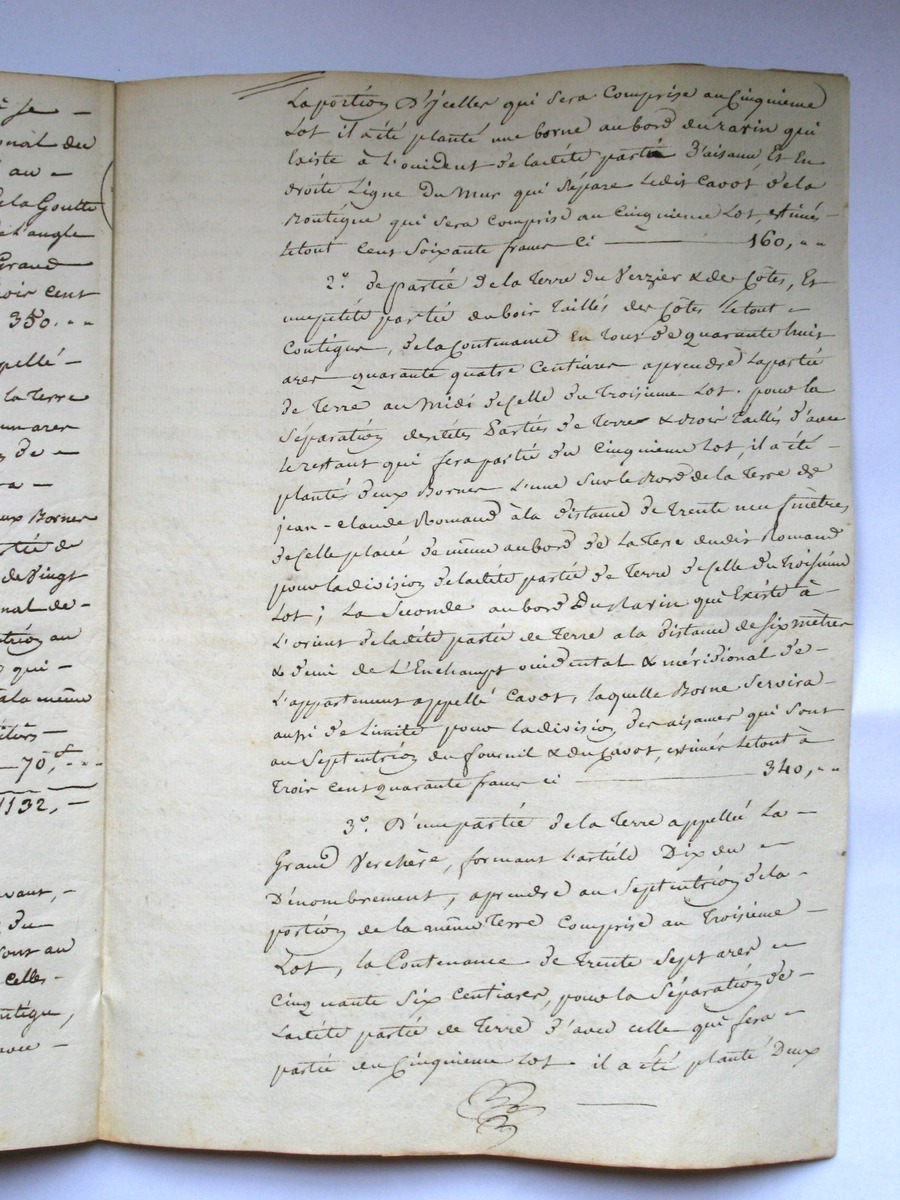 te Je —
onal du
au —
de la Goutte
de l'angle
Grand
trois cent
350. „ „
appellé —
la terre
un ares
de —
ra —
deux Bornes
partie de
de vingt
onal de —
septentrion au
qui —
à la même
— 70, „ „
1132, —
devant, —
du
sont au
celles —
contigue,
avec —
La portion D'ycelles qui sera Comprise au Cinquieme
Lot il a été planté une borne au bord du ravin qui
Existe à L'occident de ladite partie D'aisance Et En
droite Ligne Du Mur qui sépare Ledit Cavot de la
Boutique qui sera Comprise au Cinquieme Lot, estimés
Le tout Cent Soixante francs Ci — 160, „ „
2.° de partie de la terre du Verzier & des Côtes, Et
une petite partie du bois taillés des Côtes Le tout —
Contigus, de la Contenance En tout de quarante huit
ares quarante quatre Centiares aprendre La partie
de Terre au Midi de Celle du Troisieme Lot. pour la
Séparation desdites Parties de Terre & Bois taillés d'avec
Le restant qui fera partie du Cinquieme Lot, il a été
plantés deux Bornes L'une sur le Bord de la Terre de
jean-Claude Romand à la distance de trente neuf mètres
de Celle placée de même au bord de La terre dudit Romand
pour la division de ladite partie de Terre de Celle du Troisieme
Lot ; La Seconde au bord Du Ravin qui Existe à
L'orient de ladite partie de Terre a la distance de six mètres
& demi de L'Enchamps occidental & méridional de —
L'appartement appellé Cavot, laquelle Borne Servira —
aussi de Limite pour la division des aisances qui sont
au Septentrion du fournil & du Cavot, estimés Le tout à
Trois cent quarante francs ci — 340, „ „
3.° D'une partie de la Terre appellée La —
Grand Verchère, formant L'article Dix du —
Dénombrement, aprendre au Septentrion de la —
portion de la même Terre Comprise au Troisieme —
Lot, la Contenance de Trente Sept ares —
Cinquante Six Centiares, pour la Séparation de —
Ladite partie de Terre d'avec celle qui fera —
partie du Cinquieme Lot il a été planté Deux